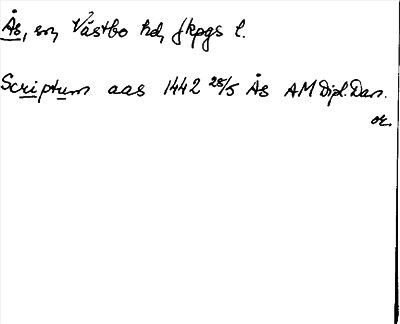 Ås, sn, Västbo hd, Jkpgs l.
Scriptum aas 1442 28/5 Ås AM Dipl. Dan.
or.